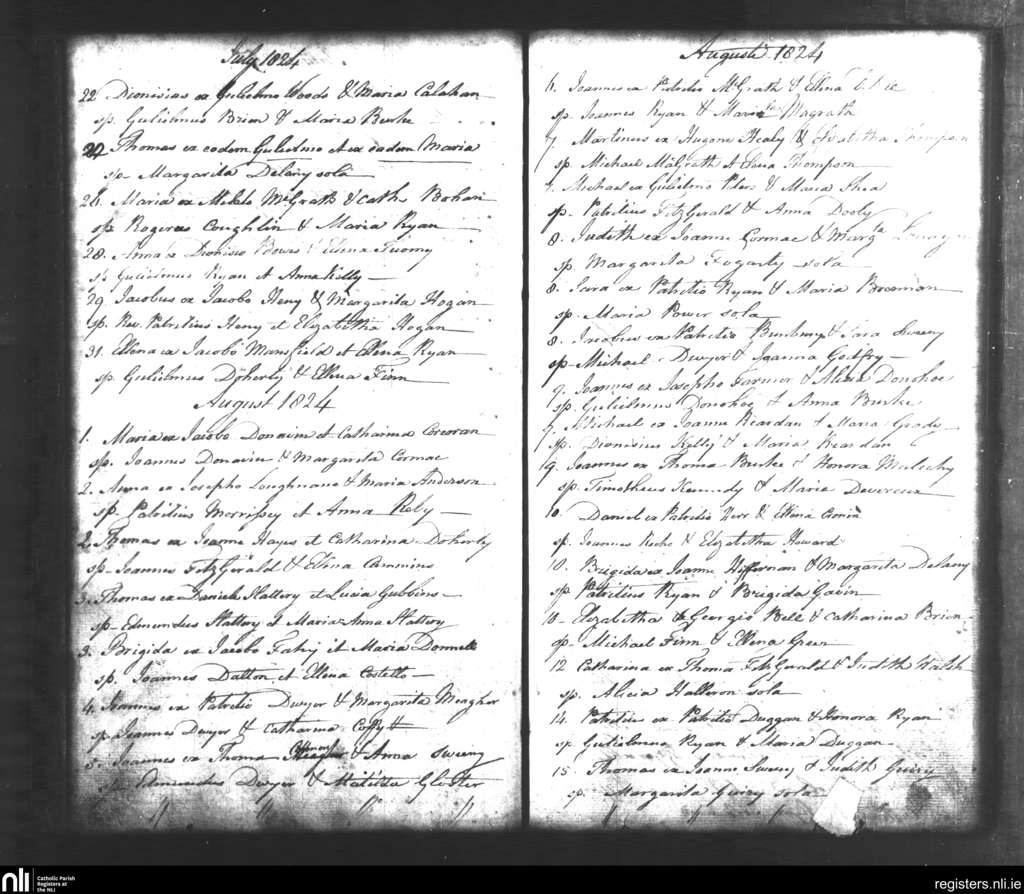 July 1824
22 Dionisias ex Gulielmo Woods & Maria Calahan
sp. Gulielmus Brien & Maria Burke
22 Thomas ex eodem Gulielmo et ex eadem Maria
sp Margarita Delany sola
26. Maria ex McGrath & Cath: Bohan
sp. Rogerus Coughlin & Maria Ryan
28. Anna ex Dionisio & Elena Tuomy
sp Gulielmus Ryan et Anna Kelly
29 Jacobus ex Jacobo Heny & Margarita Hogan
sp. Rev. Patritius Heny et Elizabetha Hogan
31. Ellena ex Jacobo Mansfield et Ellena Ryan
sp. Gulielmus Doherty & Ellena Finn
August 1824
1. Maria ex Jacobo et Catharina Corcoran
sp. Joannes & Margarita Cormac
2. Anna ex Josepho Loughnane & Maria Anderson
sp. Patritius Morrissey et Anna
2 Thomas ex Joanne Hayes et Catharina Doherty
sp Joannes FitzGerald & Ellena Cummins
3. Thomas ex Daniele Slattery et Lucia Gubbins
sp Edmundus Slattery et Maria Anna Slattery
3. Brigida ex Jacobo Fahy et Maria
sp. Joannes Dalton et Ellena Costello
4. Joannes ex Patritio Dwyer & Margarita Meagher
sp Joannes Dwyer & Catharina
5. Joannes ex Thoma & Anna Sweeny
sp Edmundus Dwyer & Matilda Gloster
Augusti 1824
6. Joannes ex Patritio McGrath & Ellena
sp. Joannes Ryan & Maria Magrath
7. Martinus ex Hugone Healy & Elizabetha Thompson
sp. Michael McGrath et Thompson
7. Michael ex Gulielmo & Maria Shea
sp. Patritius FitzGerald & Anna Dooly
8. Judith ex Joanne Cormac & Margta
sp. Margarita Fogarty sola
8. Sara ex Patritio Ryan & Maria
sp. Maria Power sola
8. Jacobus ex Patritio & Sara Sweeny
sp Michael Dwyer & Joanna Godfry
9. Joannes ex Josepho Farmer & Alicia Donohoe
sp. Gulielmus Donohoe & Anna Burke
9. Michael ex Joanne Reardan & Maria Grady
sp. Dionisius Kelly & Maria Reardan
9. Joannes ex Thoma Burke & Honora Mulcahy
sp. Timotheus Kennedy & Maria Devereux
10. Daniel ex Patritio & Ellena Cronin
sp. Joannes Roche & Elizabetha Howard
10. Brigida ex Joanne Heffernan & Margarita Delany
sp Patritius Ryan & Brigida Gavin
10 Elizabetha ex Georgio Bell & Catharina Brien
sp. Michael Finn & Ellena Green
12 Catharina ex Thoma FitzGerald & Judith Walsh
sp. Alicia Halloron sola
14. Patritius ex Patritio Duggan & Honora Ryan
sp Gulielmus Ryan & Maria Duggan
15. Thomas ex Joanne Sweeny & Judith Guiry
sp. Margarita Guiry sola
nli
Catholic Parish
Registers at
the NLI
registers.nli.ie